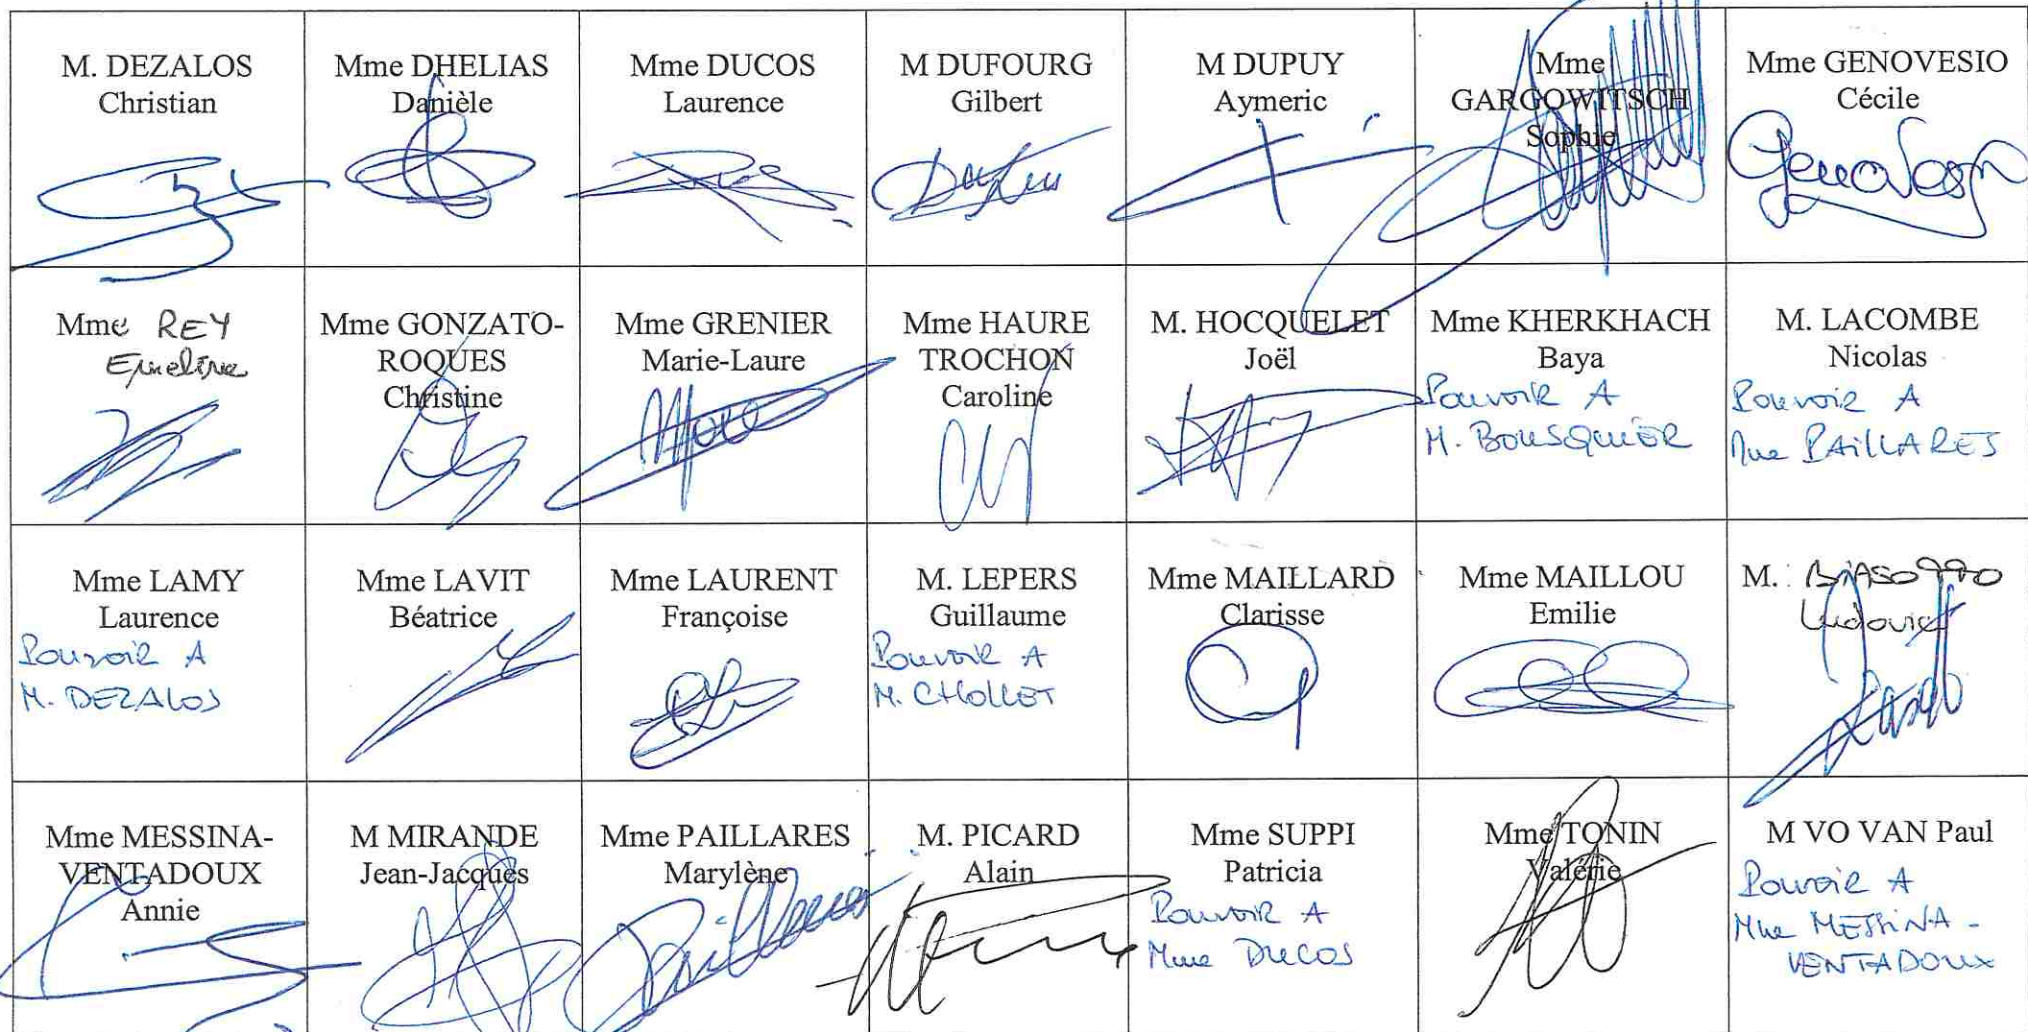 M. DEZALOS
Christian
Mme DHELIAS
Danièle
Mme DUCOS
Laurence
M DUFOURG
Gilbert
M DUPUY
Aymeric
Mme
GARGOWITSCH
Sophie
Mme GENOVESIO
Cécile
Mme REY
Emeline
Mme GONZATO-
ROQUES
Christine
Mme GRENIER
Marie-Laure
Mme HAURE
TROCHON
Caroline
M. HOCQUELET
Joël
Mme KHERKHACH
Baya
Pouvoir A
M. BOUSQUIER
M. LACOMBE
Nicolas
Pouvoir A
Mme PAILLARES
Mme LAMY
Laurence
Pouvoir A
M. DEZALOS
Mme LAVIT
Béatrice
Mme LAURENT
Françoise
M. LEPERS
Guillaume
Pouvoir A
M. CHOLLET
Mme MAILLARD
Clarisse
Mme MAILLOU
Emilie
M. BIASOTTO
Ludovic
Mme MESSINA-
VENTADOUX
Annie
M MIRANDE
Jean-Jacques
Mme PAILLARES
Marylène
M. PICARD
Alain
Mme SUPPI
Patricia
Pouvoir A
Mme DUCOS
Mme TONIN
Valérie
M VO VAN Paul
Pouvoir A
Mme MESSINA-
VENTADOUX